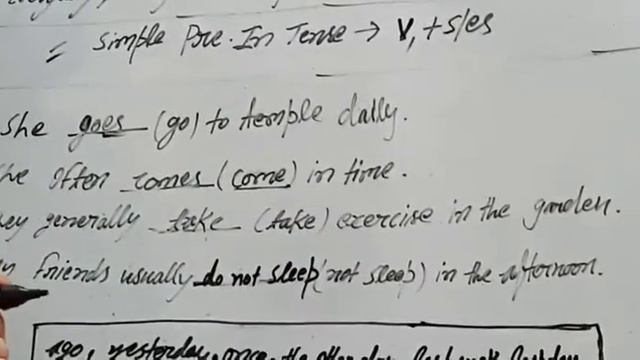 = Simple Pre. In Tense → V₁ + s/es
she goes (go) to temple dally.
he often comes (come) in time.
ey generally take (take) exercise in the garden.
friends usually do not sleep (not sleep) in the afternoon.
ago, yesterday, once, the other day,